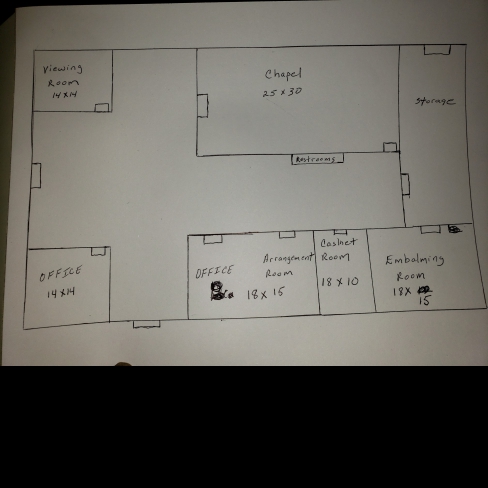 Viewing
Room
14x14
Chapel
25 x 30
Storage
Restrooms
OFFICE
14x14
OFFICE
Arrangement
Room
18 x 15
Cashet
Room
18 x 10
Embalming
Room
18x
15